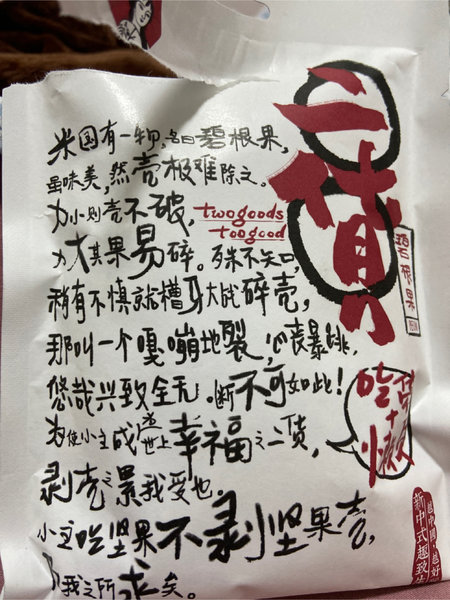 米国有一物,名曰碧根果,
虽味美,然壳极难除之。
力小则壳不破,
力大其果易碎。殊不知,
稍有不慎就槽牙大战碎壳,
那叫一个嘎嘣地裂,心丧暴跳,
悠哉兴致全无。断不可如此!
为使小主成盖世上幸福之二货,
剥壳之累我受也。
小主吃坚果不剥坚果壳,
我之所求矣。
twogoods
toogood
二货
碧根果
吃货
+
懒
新中式趣致